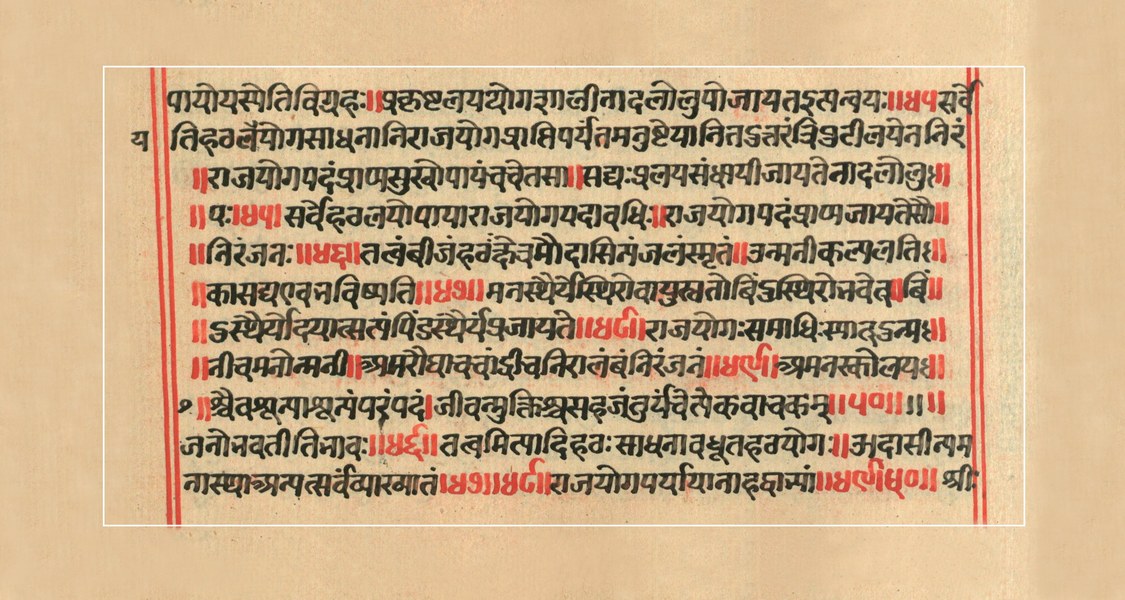 पायोयस्येतिविग्रहः॥प्रकृष्टलययोगशालीनादलोलुपोजायतइत्यन्वयः॥४५सर्वे
य तिहठलययोगसाधनानिराजयोगप्राप्तिपर्यंतमनुष्टेयानितउत्तरंत्रिपुटीलयेननिरं
॥राजयोगपदंप्राप्यसुखोपायंवचेतसा॥सद्यःप्रलयसंधायीजायतेनादलोलु॥
॥पः॥४५॥सर्वेहठलयोपायाराजयोगपदावधिः॥राजयोगपदंप्राप्यजायतेसौ॥
॥निरंजनः॥४६॥तत्वंबीजंहठंक्षेत्रमौदासिन्यंजलंस्मृतं॥उन्मनीकल्पलति॥
॥कासद्यएवभविष्यति॥४७॥मनस्थैर्येस्थिरोवायुस्ततोबिंदुस्थिरोभवेत्॥बिं॥
॥दुस्थैर्योदयात्सत्यंपिंडस्थैर्यंप्रजायते॥४८॥राजयोगःसमाधिःस्यादुन्म॥
॥नीचमनोन्मनी॥अमरौघावचांद्रीचनिरालंबंनिरंजनं॥४९॥अमनस्कोलय॥
१ ॥श्चैवशून्याशून्यंपरंपदं।जीवन्मुक्तिश्चसहजंतुर्यंचैत्येकवाचकम्॥५०॥॥॥
जनोभवतीतिभावः॥४६॥तत्वमित्यादिहठः साधनावधूतहठयोगः॥औदासीन्यम
नास्थाअन्यत्सर्वंव्याख्यातं॥४७॥४८॥राजयोगपर्यायानाहद्वाभ्यां॥४९॥५०॥ श्रीः